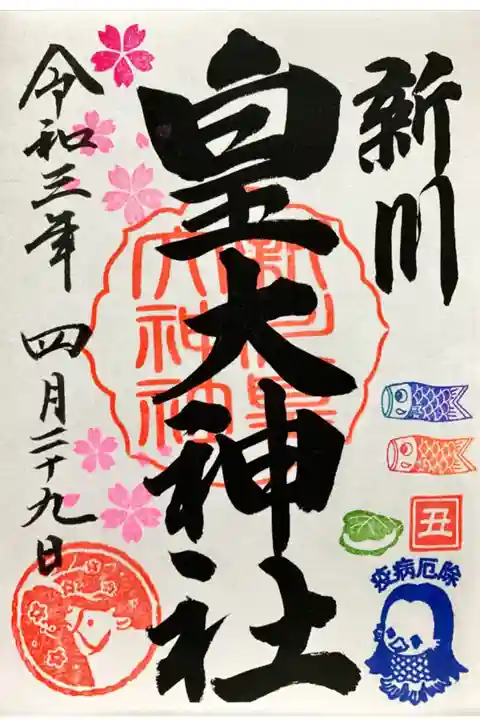 新川
皇大神社
令和三年 四月二十九日
丑
疫病厄除